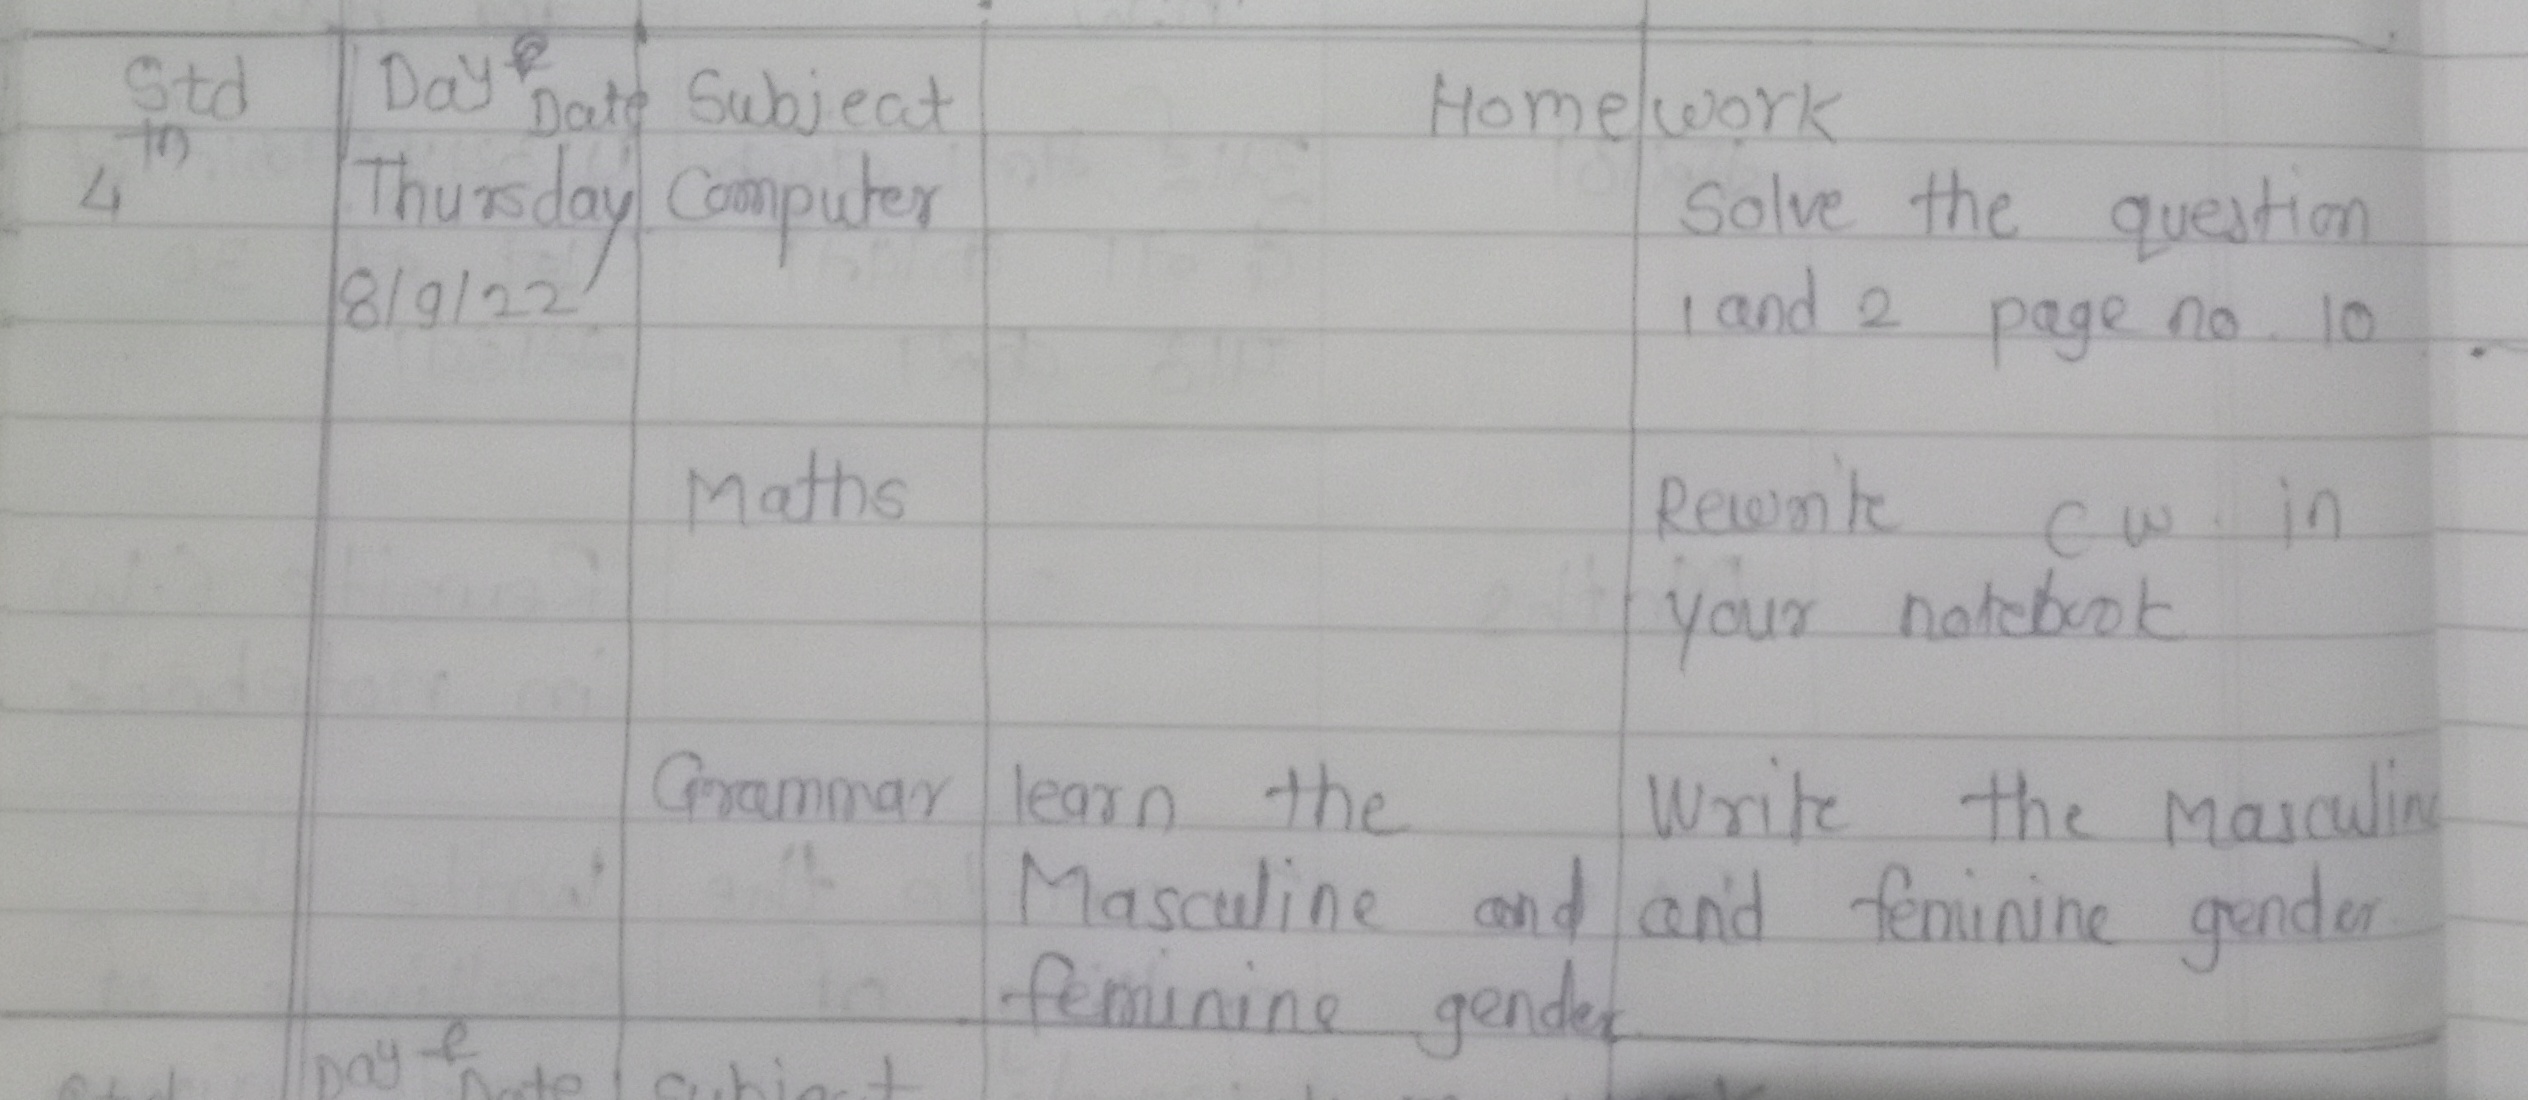 Std Day & Date Subject Homework
4th Thursday Computer Solve the question
8/9/22 1 and 2 page no. 10
Maths Rewrite C W in
your notebook
Grammar learn the Write the Masculine
Masculine and and feminine gender
feminine gender
Day & Date Subject